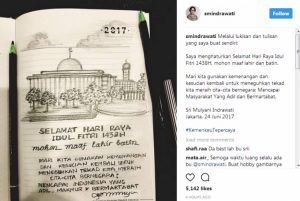 2017
SELAMAT HARI RAYA
IDUL FITRI 1438H
mohon maaf lahir batin
MARI KITA GUNAKAN KEMENANGAN
DAN KESUCIAN KEMBALI UNTUK
MENEGUHKAN TEKAD MERAIH
CITA-CITA BERNEGARA:
MENCAPAI INDONESIA YANG
ADIL, MAKMUR & BERMARTABAT
smindrawati
Follow
smindrawati Melalui lukisan dan tulisan
yang saya buat sendiri:
Saya menghaturkan Selamat Hari Raya Idul
Fitri 1438H, mohon maaf lahir dan batin.
Mari kita gunakan kemenangan dan
kesucian kembali untuk meneguhkan tekad
kita meraih cita-cita bernegara: Mencapai
Masyarakat Yang Adil dan Bermartabat.
Sri Mulyani Indrawati
Jakarta, 24 Juni 2017
#KemenkeuTepercaya
shafi.raa Da best lah bu sri
mata.air_ Semoga waktu luang selalu ada
bu Buat hobby gambarnya
5,142 likes